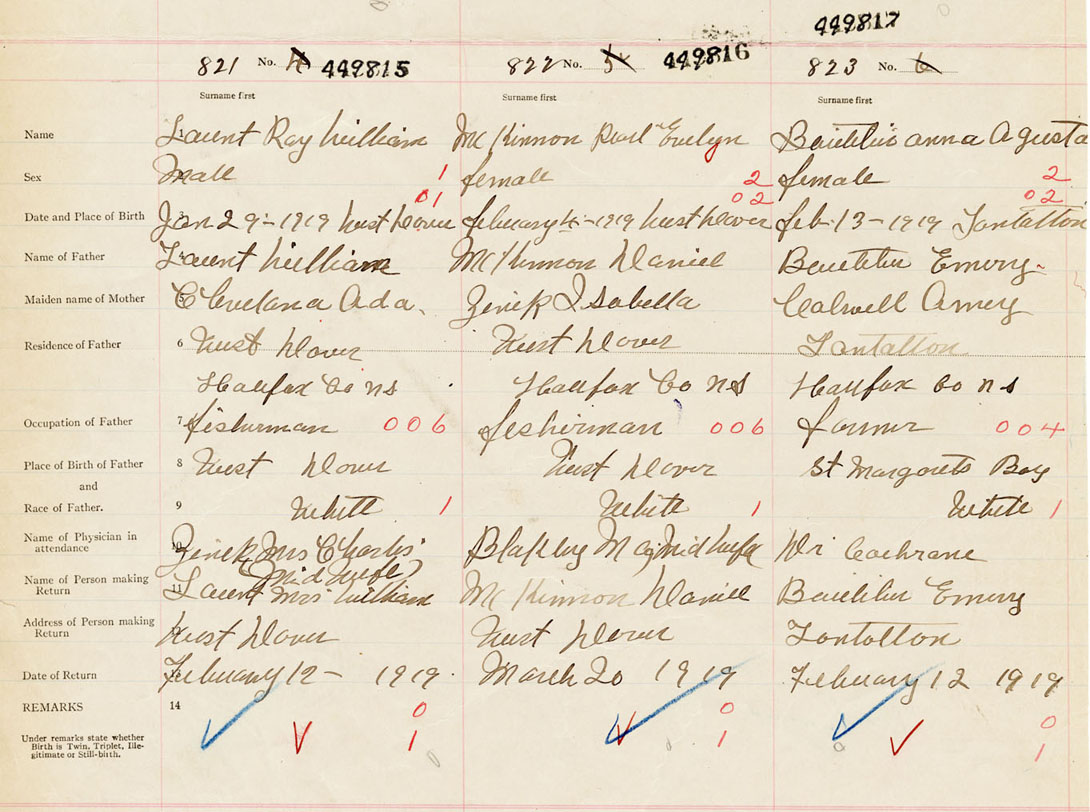 449817
821 No. 4 449815 822 No. 5 449816 823 No. 6
Surname first Surname first Surname first
Name 1 Laurent Ray William Mc Kinnon Pearl Evelyn anna Agusta
Sex Male 1 female 2 female 2
01 02 02
Date and Place of Birth Jan 29 - 1919 West Dover february 4 - 1919 West Dover feb 13 - 1919 Tantallon
Name of Father William Mc Kinnon Daniel Emery
Maiden name of Mother Cleveland Ada. Zink Isabella Calwell Amey
Residence of Father 6 West Dover West Dover Tantallon
Halifax Co NS Halifax Co NS Halifax Co NS
Occupation of Father 7 fisherman 006 fisherman 006 farmer 004
Place of Birth of Father 8 West Dover West Dover St Margarets Bay
and
Race of Father. 9 White 1 White 1 White 1
Name of Physician in
attendance 10 Zink Mrs Charles Midwife Dr Cochrane
(Midwife)
Name of Person making
Return 11 Mrs William Mc Kinnon Daniel Emery
Address of Person making
Return West Dover West Dover Tantallon
Date of Return February 12 - 1919. March 20 1919 February 12 1919
REMARKS 14 0 0 0
Under remarks state whether
Birth is Twin, Triplet, Ille-
gitimate or Still-birth. 1 1 1